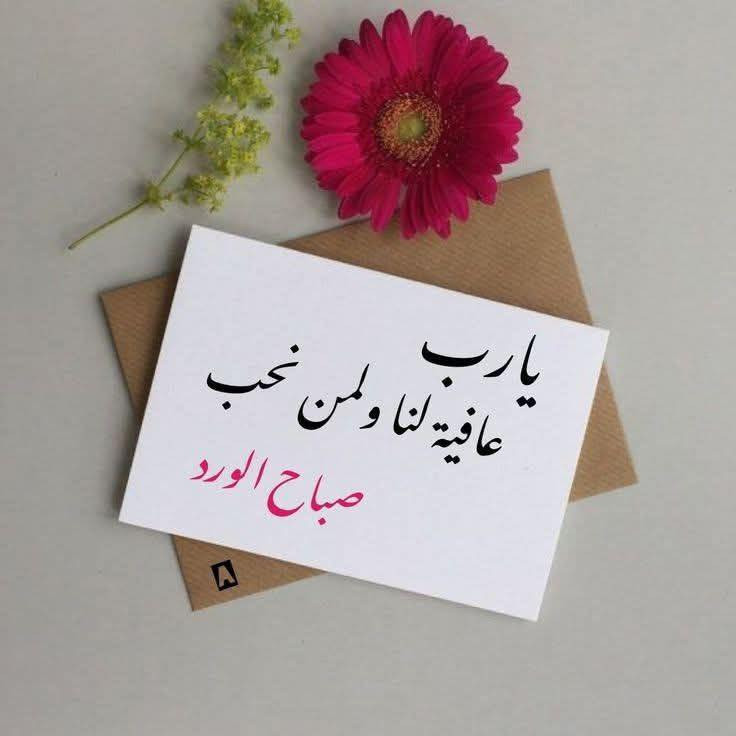 يارب
عافية لنا ولمن نحب
صباح الورد
A